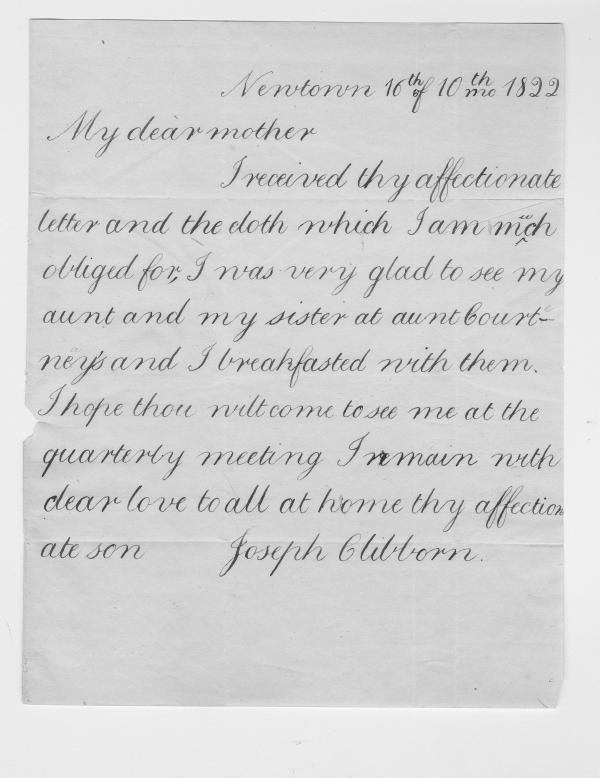 Newtown 16th of 10th mo 1822
My dear mother
I received thy affectionate
letter and the cloth which I am much
obliged for, I was very glad to see my
aunt and my sister at aunt Court-
ney's and I breakfasted with them.
I hope thou wilt come to see me at the
quarterly meeting I remain with
dear love to all at home thy affection
ate son Joseph Clibborn.